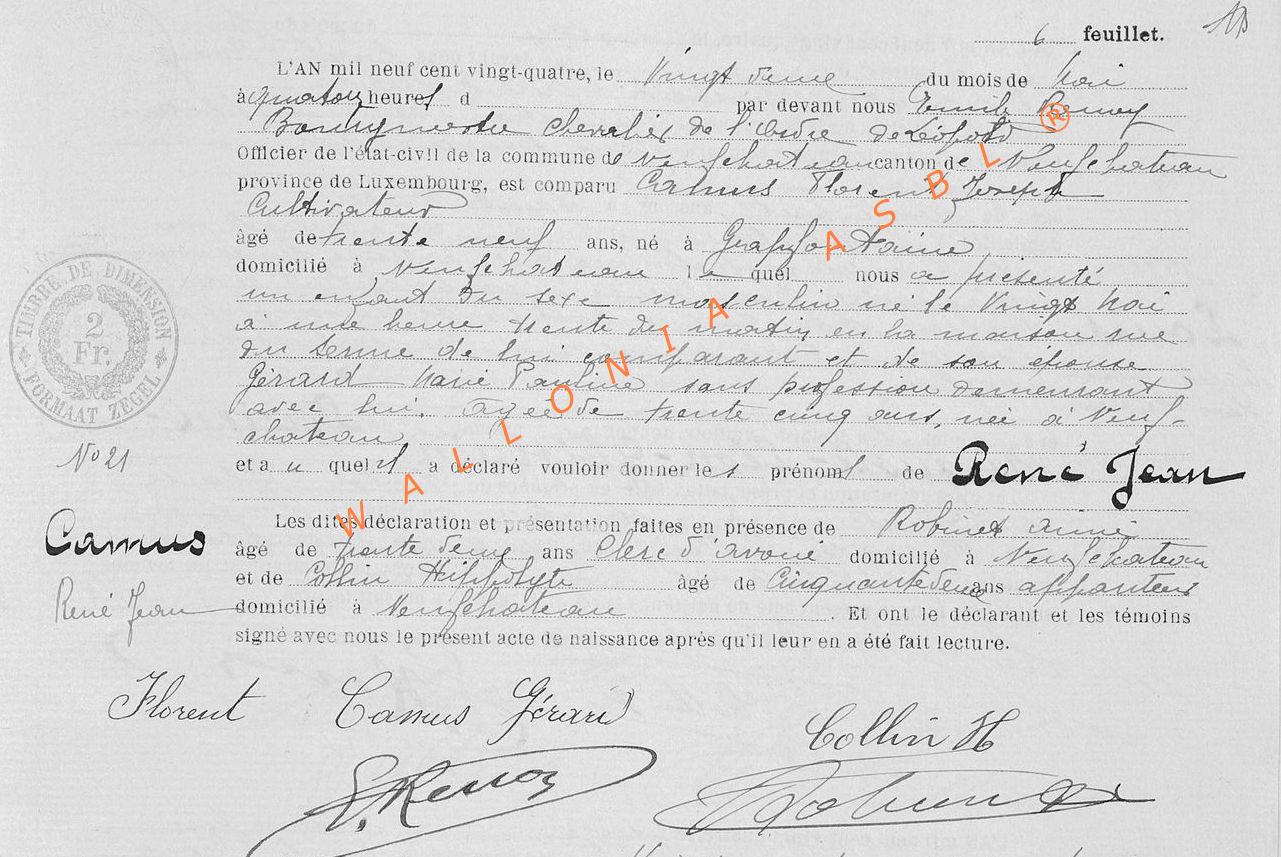 6 feuillet.
L'AN mil neuf cent vingt-quatre, le Vingt deux du mois de Mai
à quatorze heures d par devant nous Emile Renoy
Bourgmestre Chevalier de l'Ordre de Léopold
Officier de l'état-civil de la commune de Neufchateau canton de Neufchateau
province de Luxembourg, est comparu Camus Florent Joseph
Cultivateur
âgé de trente neuf ans, né à Grapfontaine
domicilié à Neufchateau le quel nous a présenté
un enfant du sexe masculin né le Vingt Mai
à une heure trente du matin en la maison rue
du Terme de lui comparant et de son épouse
Gérard Marie Pauline sans profession demeurant
avec lui. agée de trente cinq ans, née à Neuf-
chateau
et au quel il a déclaré vouloir donner les prénoms de René Jean
Les dites déclaration et présentation faites en présence de Robinet Aimé
âgé de trente deux ans Clerc d'avoué domicilié à Neufchateau
et de Collin Hippolyte âgé de Cinquante deux ans appariteur
domicilié à Neufchateau. Et ont le déclarant et les témoins
signé avec nous le présent acte de naissance après qu'il leur en a été fait lecture.
TIMBRE DE DIMENSION
2
Fr.
FORMAAT ZEGEL
No 21
Camus
René Jean
Florent Camus Gérard
Collin H
E. Renoy
WALLONIA ASBL ®